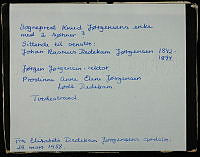 Sogneprest Knud Jørgensens enke
med 2 sønner ?
Sittende til venstre:
Johan Rasmus Dedekam Jørgensen 1842-
1894
Jørgen Jørgensen - rektor
Prostinne Anne Elene Jørgensen
født Dedekam
Tvedestrand
Fra Elisabeth Dedekam Jørgensens samling.
29 mars 1958